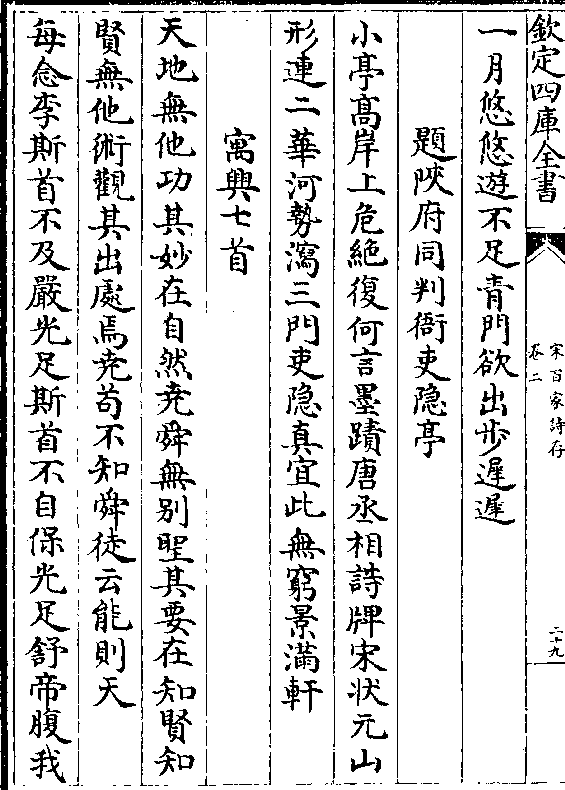 欽定四庫全書
宋百家詩存
卷二
二十九
一月悠悠遊不足青門欲出步遲遲
題陜府同判衙吏隐亭
小亭髙岸上危絶復何言墨蹟唐丞相詩牌宋狀元山
形連二華河勢瀉三門吏隐真宜此無窮景滿軒
寓興七首
天地無他功其妙在自然堯舜無别聖其要在知賢知
賢無他術觀其出處焉堯茍不知舜徒云能則天
每念李斯首不及嚴光足斯首不自保光足舒帝腹我